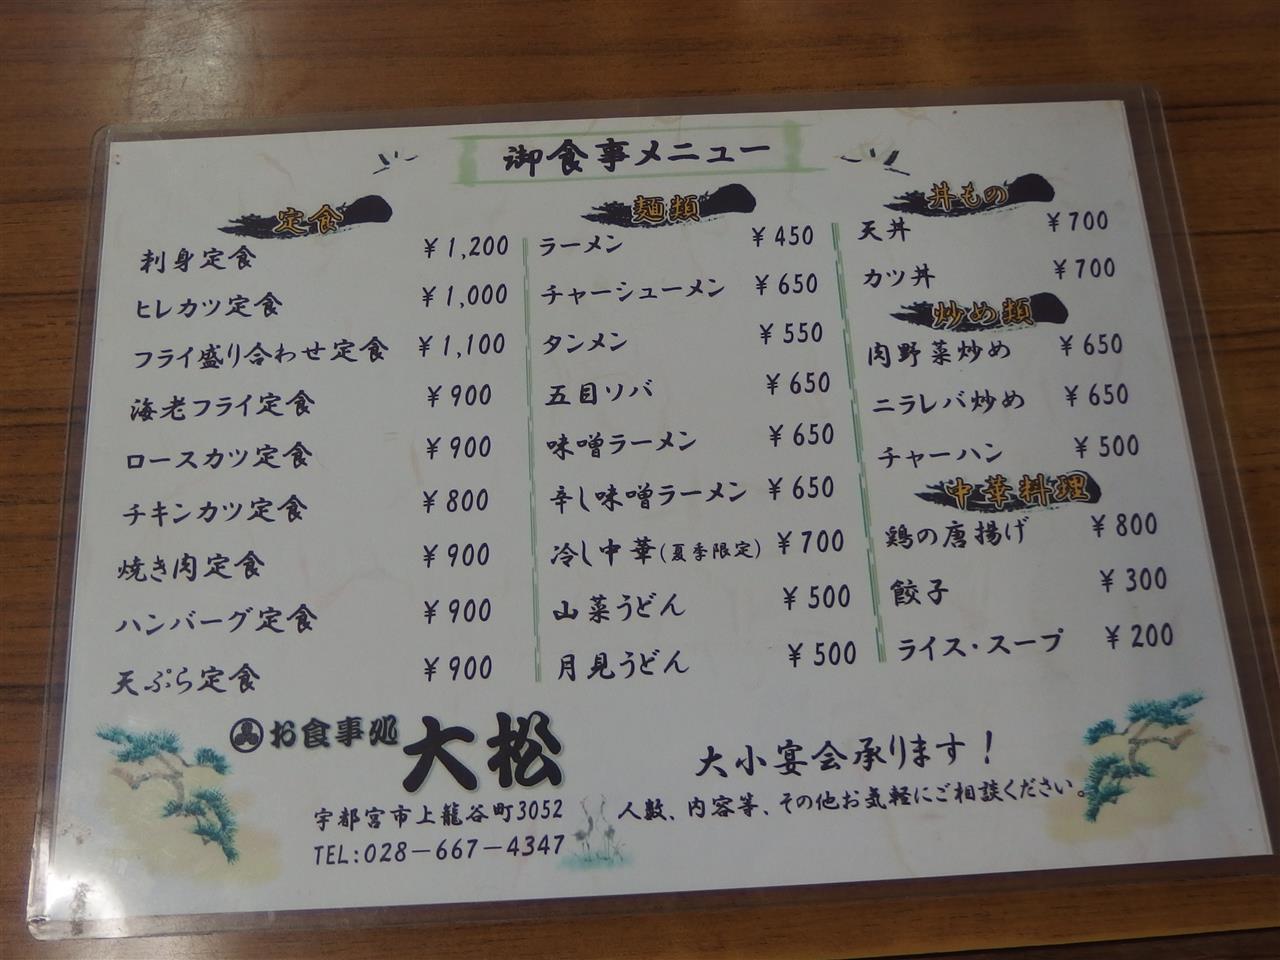 御食事メニュー
定食
刺身定食 ¥1,200
ヒレカツ定食 ¥1,000
フライ盛り合わせ定食 ¥1,100
海老フライ定食 ¥900
ロースカツ定食 ¥900
チキンカツ定食 ¥800
焼き肉定食 ¥900
ハンバーグ定食 ¥900
天ぷら定食 ¥900
麺類
ラーメン ¥450
チャーシューメン ¥650
タンメン ¥550
五目ソバ ¥650
味噌ラーメン ¥650
辛し味噌ラーメン ¥650
冷し中華(夏季限定) ¥700
山菜うどん ¥500
月見うどん ¥500
丼もの
天丼 ¥700
カツ丼 ¥700
炒め類
肉野菜炒め ¥650
ニラレバ炒め ¥650
チャーハン ¥500
中華料理
鶏の唐揚げ ¥800
餃子 ¥300
ライス・スープ ¥200
お食事処 大松
宇都宮市上龍谷町3052
TEL:028-667-4347
大小宴会承ります!
人数、内容等、その他お気軽にご相談ください。